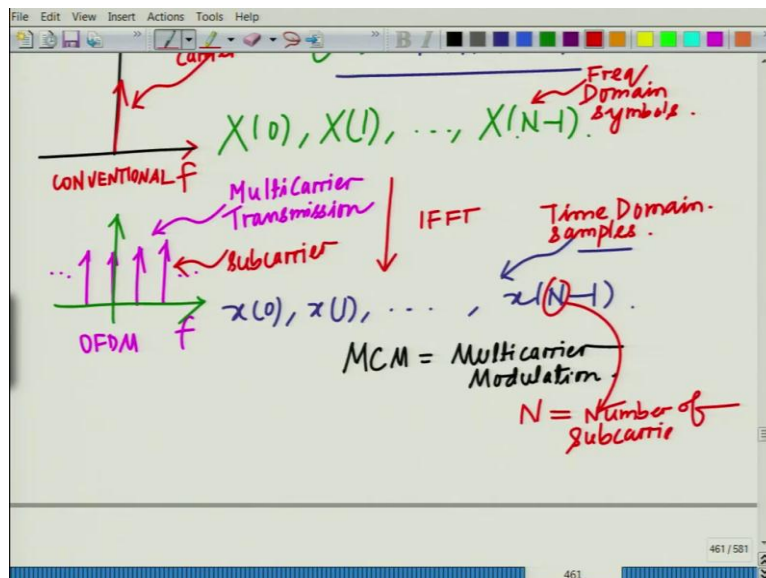 File Edit View Insert Actions Tools Help
Carrier
Freq
Domain
Symbols.
X(0), X(1), ..., X(N-1).
CONVENTIONAL f
Multicarrier
Transmission
IFFT
Time Domain.
samples.
Subcarrier
... ...
x(0), x(1), ...., x(N-1).
OFDM f
MCM = Multicarrier
Modulation.
N = Number of
Subcarrie
461 / 581
461